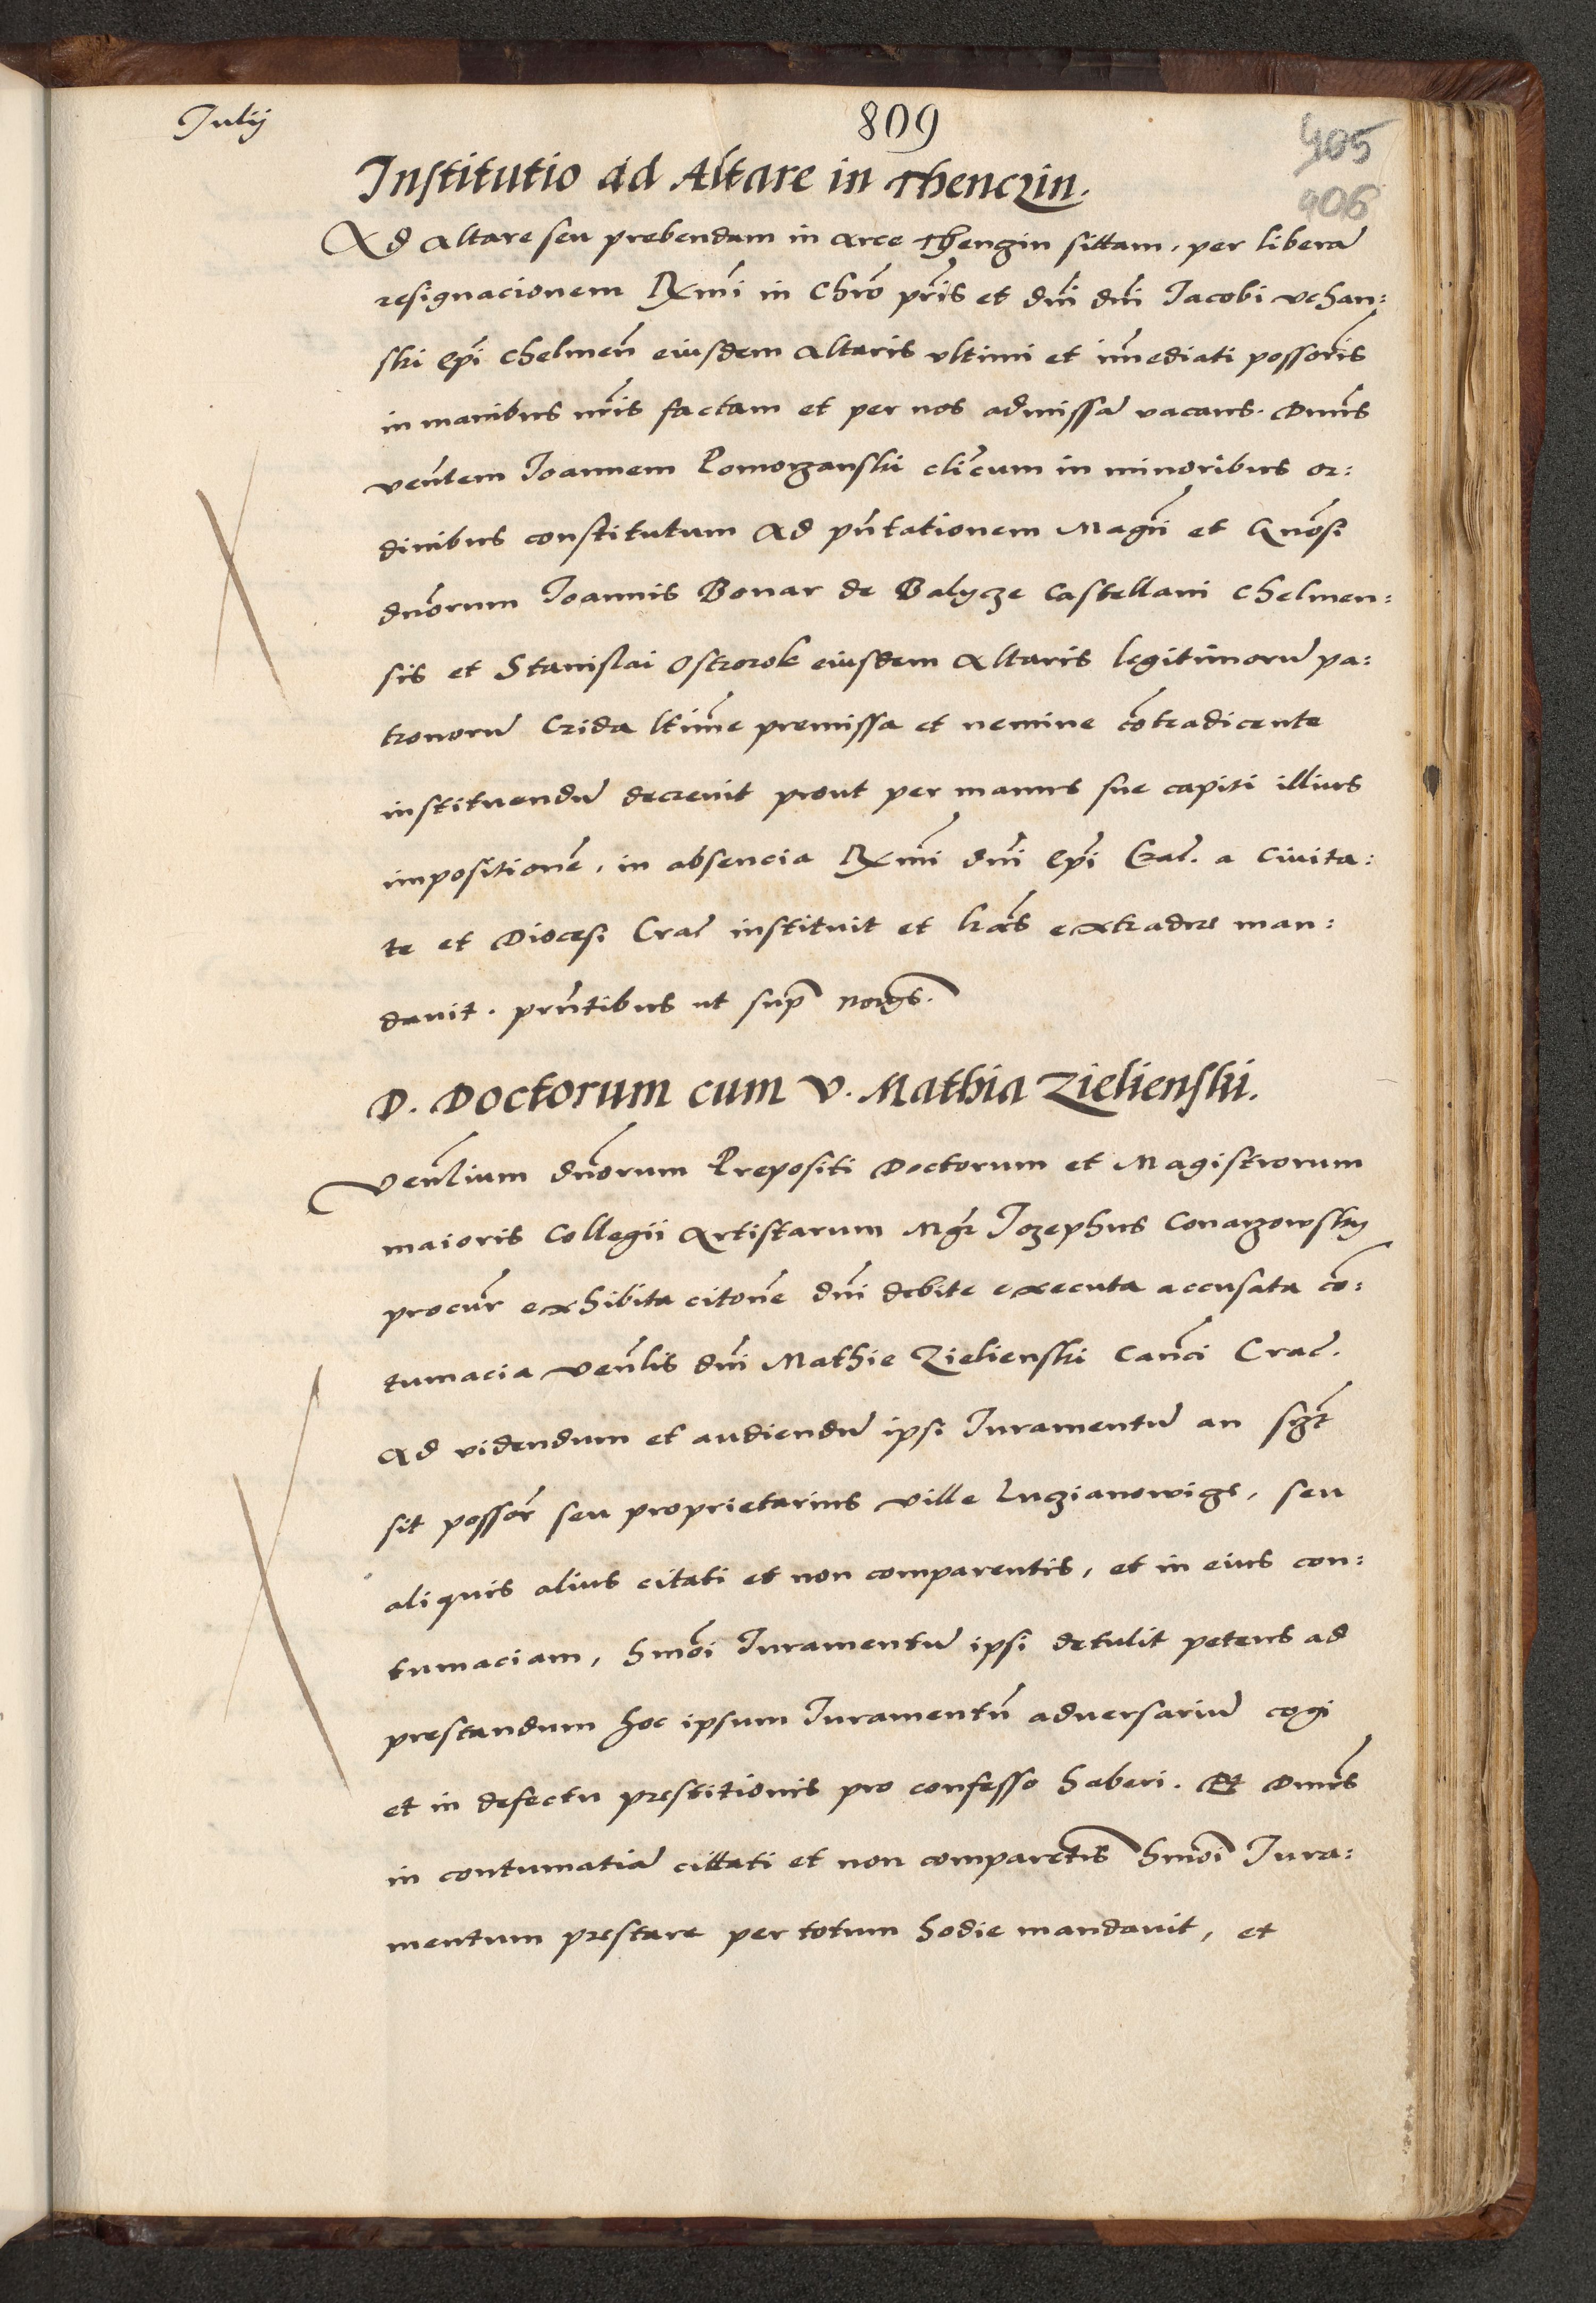 Julij
809
405
906
Institutio ad Altare in Thenczin.
Ad Altare seu prebendam in arce Thenzin sittam, per liberā
resignacionem Rxmi in Chro pris et dni dni Jacobi vchan:
ski Epi Chelmeñ eiusdem Altaris vltimi et īmediati possoris
in manibus nris factam et per nos admissā vacans. Dnus
ventem Joannem Pomorzanski clicum in minoribus or:
dinibus constitutum Ad pñtationem Magci et Gnosi
dnorum Joannis Bonar de Balycze Castellani Chelmen:
sis et Stanislai Ostrorok eiusdem Altaris legitimorū pa:
tronorū Crida ltime premissa et nemine cōtradicente
instituendū decrevit prout per manus sue capiti illius
impositionē, in absencia Rxmi dni Epi Crac. a Civita:
te et Diocesi Crac instituit et lras extradi man:
davit. pñtibus ut sup
D. Doctorum cum V. Mathia Zielienski.
Venlium dnorum Prepositi Doctorum et Magistrorum
maioris Collegii Artistarum Mgr Jozephus Conarzowsky
procur exhibita citone dni debite executa accusata cō:
tumacia venlis dni Mathie Zielienski Canci Crac.
Ad videndum et audiendū ipsi Juramentū an
sit possor seu proprietarius ville Luczianowicze, seu
aliquis alius citati et non comparentis, et in eius con:
tumaciam, hmoi Juramentū ipsi detulit petens ad
prestandum hoc ipsum Juramentū adversariū cogi
et in defectu prestitionis pro confesso haberi. Et Dnus
in contumatiā cittati et non comparētis hmoi Jura:
mentum prestare per totum hodie mandavit, et